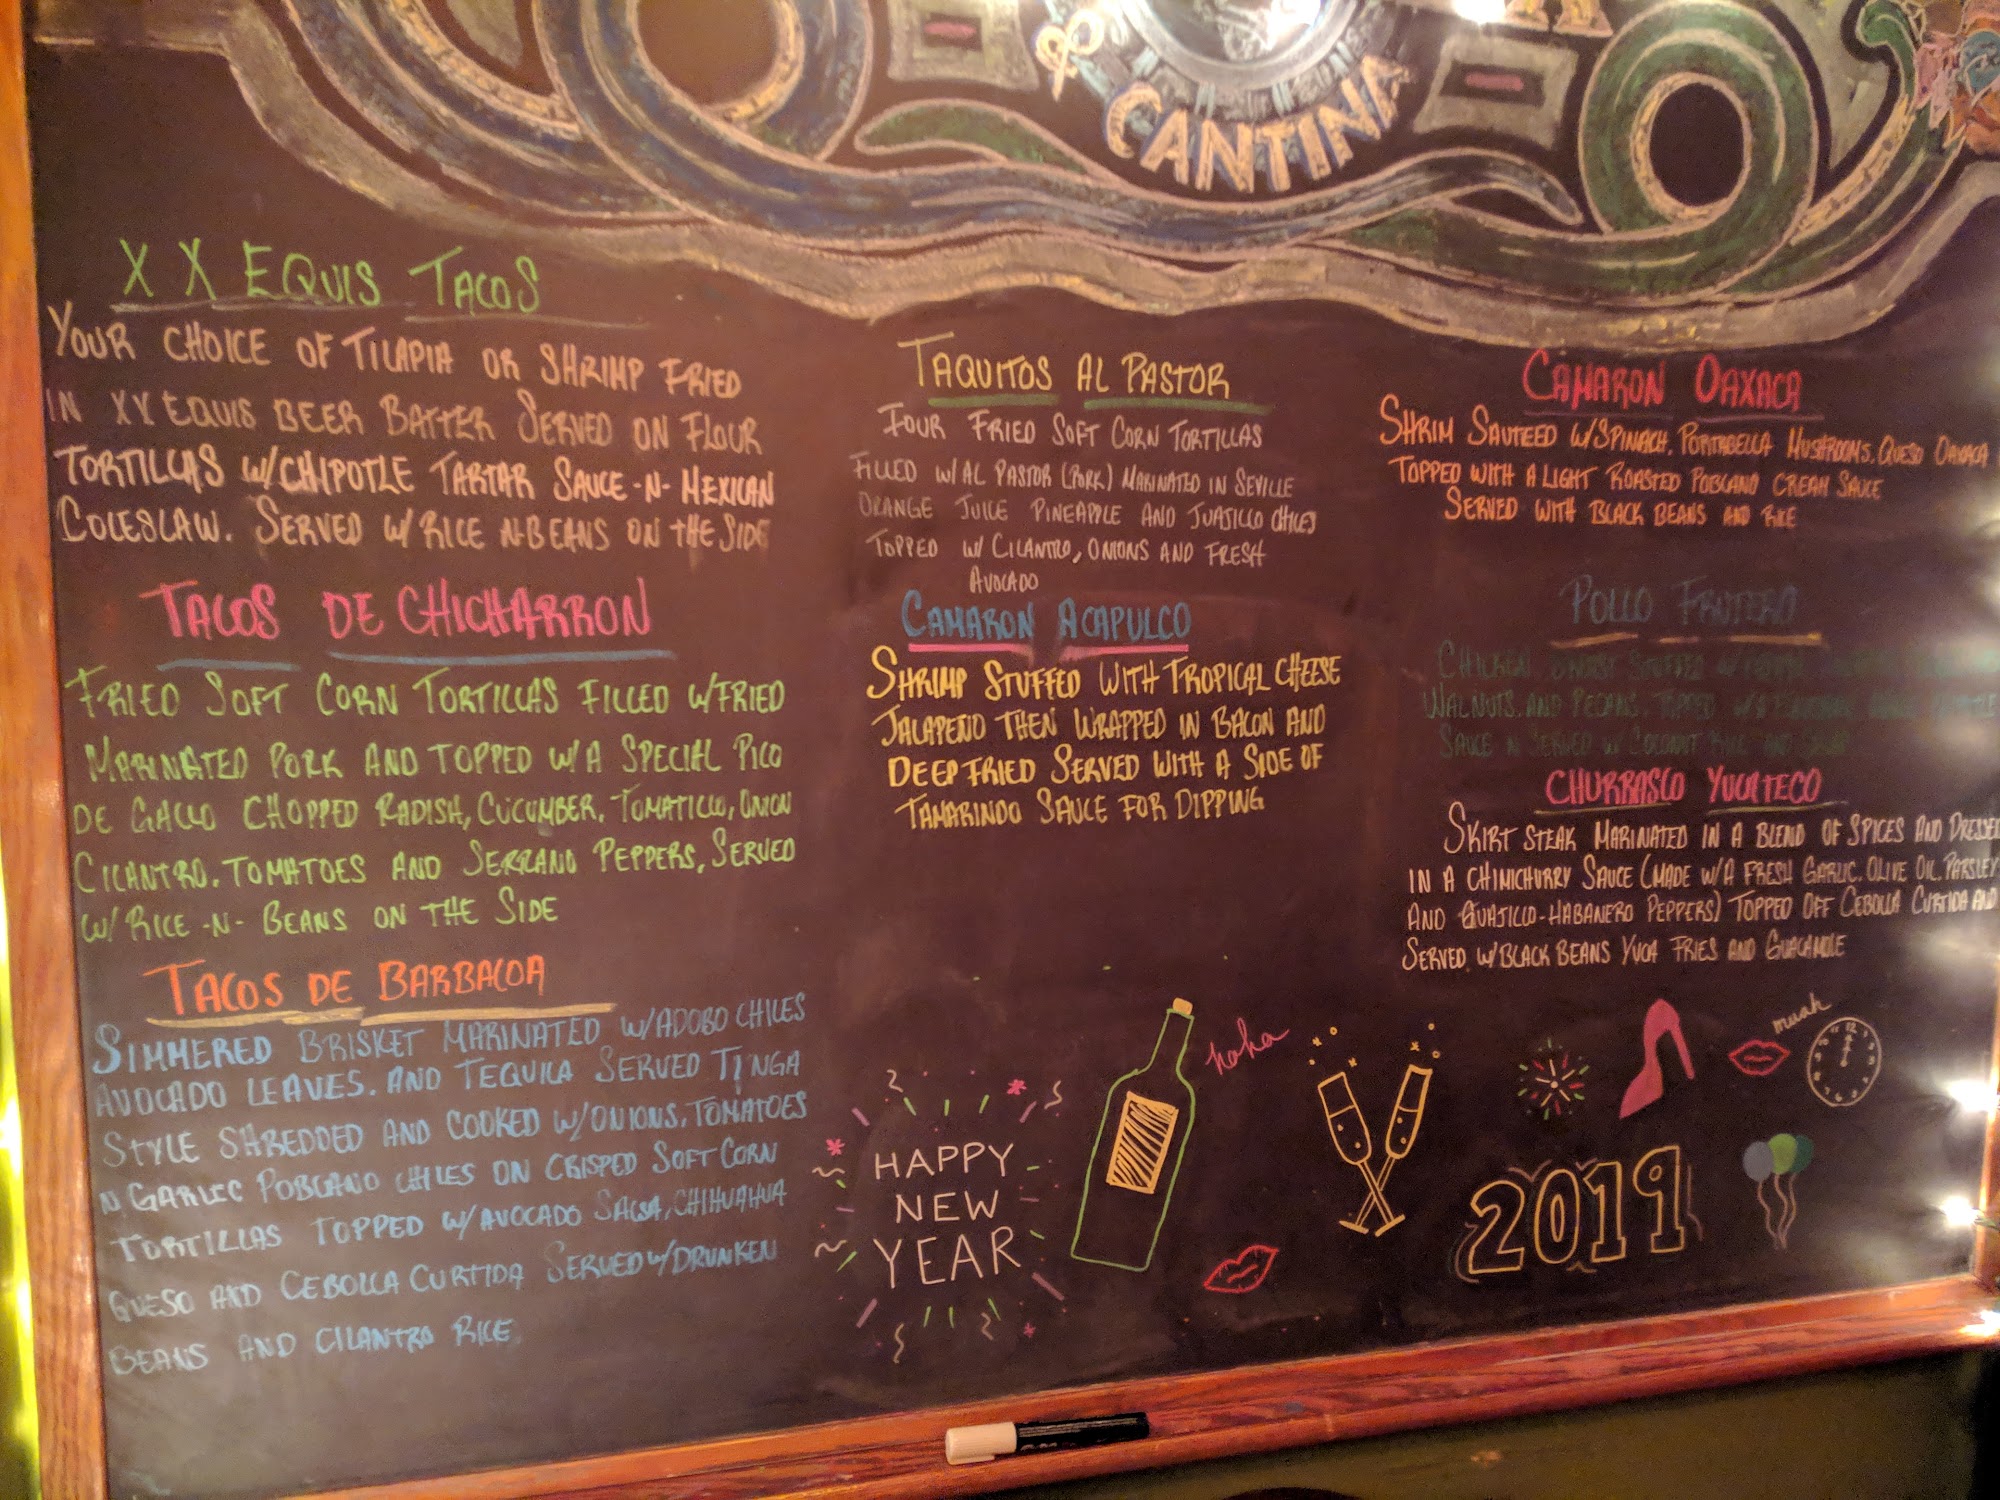 & CANTINA
X X EQUIS TACOS
YOUR CHOICE OF TILAPIA OR SHRIMP FRIED
IN XX EQUIS BEER BATTER SERVED ON FLOUR
TORTILLAS W/CHIPOTLE TARTAR SAUCE -N- MEXICAN
COLESLAW. SERVED W/ RICE N-BEANS ON THE SIDE
TACOS DE CHICHARRON
FRIED SOFT CORN TORTILLAS FILLED W/FRIED
MARINATED PORK AND TOPPED W/A SPECIAL PICO
DE GALLO CHOPPED RADISH, CUCUMBER, TOMATILLO, ONION
CILANTRO, TOMATOES AND SERRANO PEPPERS, SERVED
W/ RICE -N- BEANS ON THE SIDE
TACOS DE BARBACOA
SIMMERED BRISKET MARINATED W/ADOBO CHILES
AVOCADO LEAVES. AND TEQUILA SERVED TINGA
STYLE SHREDDED AND COOKED W/ONIONS, TOMATOES
N GARLIC POBLANO CHILES ON CRISPED SOFT CORN
TORTILLAS TOPPED W/AVOCADO SALSA, CHIHUAHUA
QUESO AND CEBOLLA CURTIDA SERVED W/DRUNKEN
BEANS AND CILANTRO RICE.
TAQUITOS AL PASTOR
FOUR FRIED SOFT CORN TORTILLAS
FILLED W/AL PASTOR (PORK) MARINATED IN SEVILLE
ORANGE JUICE PINEAPPLE AND JUAJILLO CHILES
TOPPED W/ CILANTRO, ONIONS AND FRESH
AVOCADO
CAMARON ACAPULCO
SHRIMP STUFFED WITH TROPICAL CHEESE
JALAPEÑO THEN WRAPPED IN BACON AND
DEEP FRIED SERVED WITH A SIDE OF
TAMARINDO SAUCE FOR DIPPING
CAMARON OAXACA
SHRIM SAUTEED W/SPINACH, PORTABELLA MUSHROOMS, QUESO OAXACA
TOPPED WITH A LIGHT ROASTED POBLANO CREAM SAUCE
SERVED WITH BLACK BEANS AND RICE
POLLO FRUTERO
CHICKEN BREAST STUFFED W/
WALNUTS, AND PECANS, TOPPED
SAUCE N SERVED W/ COCONUT RICE AND
CHURRASCO YUCATECO
SKIRT STEAK MARINATED IN A BLEND OF SPICES AND DRESSED
IN A CHIMICHURRY SAUCE (MADE W/A FRESH GARLIC, OLIVE OIL, PARSLEY
AND GUAJILLO-HABANERO PEPPERS) TOPPED OFF CEBOLLA CURTIDA AND
SERVED W/BLACK BEANS YUCA FRIES AND GUACAMOLE
HAPPY
NEW
YEAR
haha
muah
2019